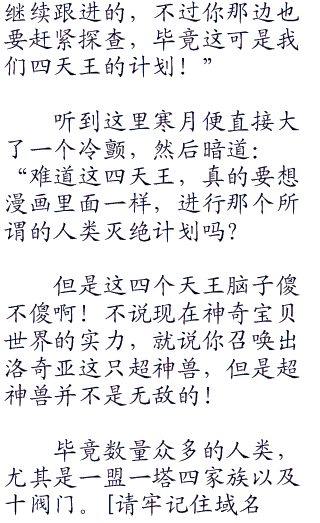 继续跟进的，不过你那边也
要赶紧探查，毕竟这可是我
们四天王的计划！”
听到这里寒月便直接大
了一个冷颤，然后暗道：
“难道这四天王，真的要想
漫画里面一样，进行那个所
谓的人类灭绝计划吗？
但是这四个天王脑子傻
不傻啊！不说现在神奇宝贝
世界的实力，就说你召唤出
洛奇亚这只超神兽，但是超
神兽并不是无敌的！
毕竟数量众多的人类，
尤其是一盟一塔四家族以及
十阀门。[请牢记住域名